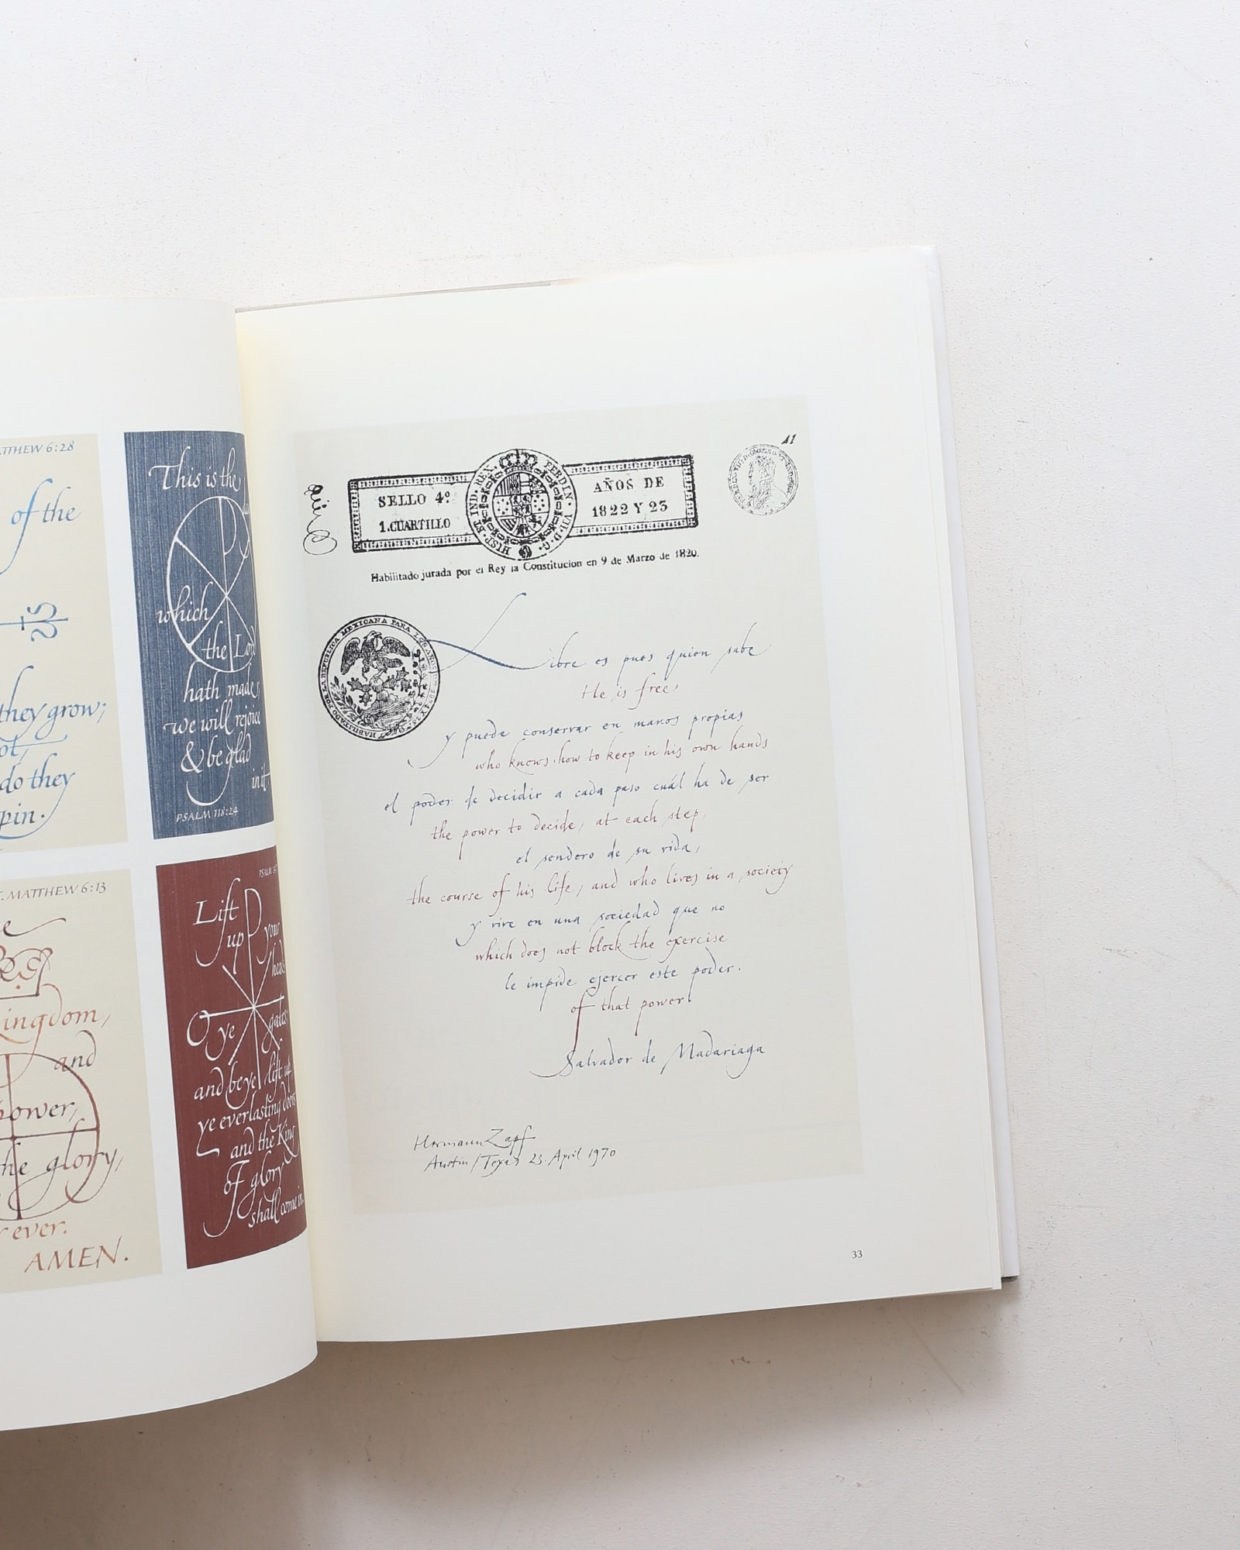 MATTHEW 6:28
of the
they grow;
do they
spin.
This is the
which
the Lord
hath made,
we will rejoice
& be glad
in it
PSALM 118:24
ST. MATTHEW 6:13
kingdom,
and
power,
the glory,
ever.
AMEN.
Lift
up your
heads
O ye gates;
and be ye lift up,
ye everlasting doors
and the King
of glory
shall come in.
11
SELLO 4º
1. CUARTILLO
HISP. ET IND. REX. FERDIN. VII. D. G.
AÑOS DE
1822 Y 23
Habilitado jurada por el Rey la Constitucion en 9 de Marzo de 1820.
Libre es pues quien sabe
He is free,
y puede conservar en manos propias
who knows how to keep in his own hands
el poder de decidir a cada paso cuál ha de ser
the power to decide, at each step,
el sendero de su vida,
the course of his life, and who lives in a society
y vive en una sociedad que no
which does not block the exercise
le impide ejercer este poder.
of that power.
Salvador de Madariaga
Hermann Zapf
Austin/Texas 23. April 1970
33